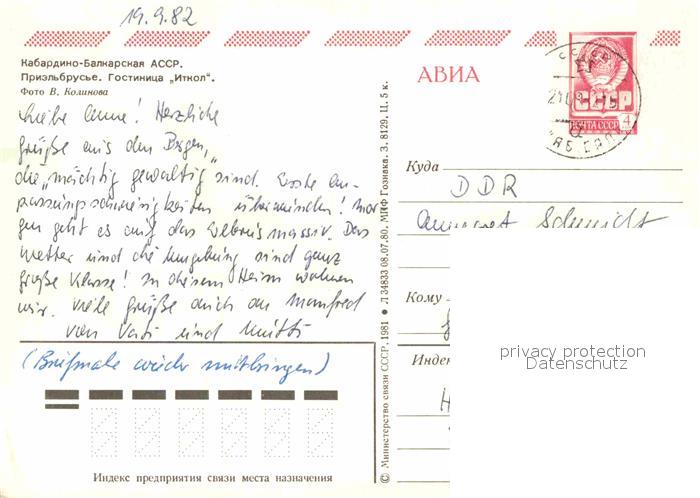 19.9.82
Кабардино-Балкарская АССР.
Приэльбрусье. Гостиница „Иткол".
Фото В. Колинова
Liebe Anne! Herzliche
Grüße aus den Bergen,
die „mächtig gewaltig sind. Erste An-
passungsschwierigkeiten überwunden! Mor
gen geht es auf das Elbrusmassiv. Das
Wetter und die Umgebung sind ganz
große Klasse! In diesem Heim wohnen
wir. Viele Grüße auch an Manfred
von Vati und Mutti
(Briefmarke wieder mitbringen)
Индекс предприятия связи места назначения
© Министерство связи СССР. 1981 ● Л 34833 08.07.80. МПФ Гознака. З. 8129. Ц. 5 к.
АВИА
СССР
ПОЧТА СССР
4
Куда
DDR
Annegret Schmidt
Кому
Индек
privacy protection
Datenschutz